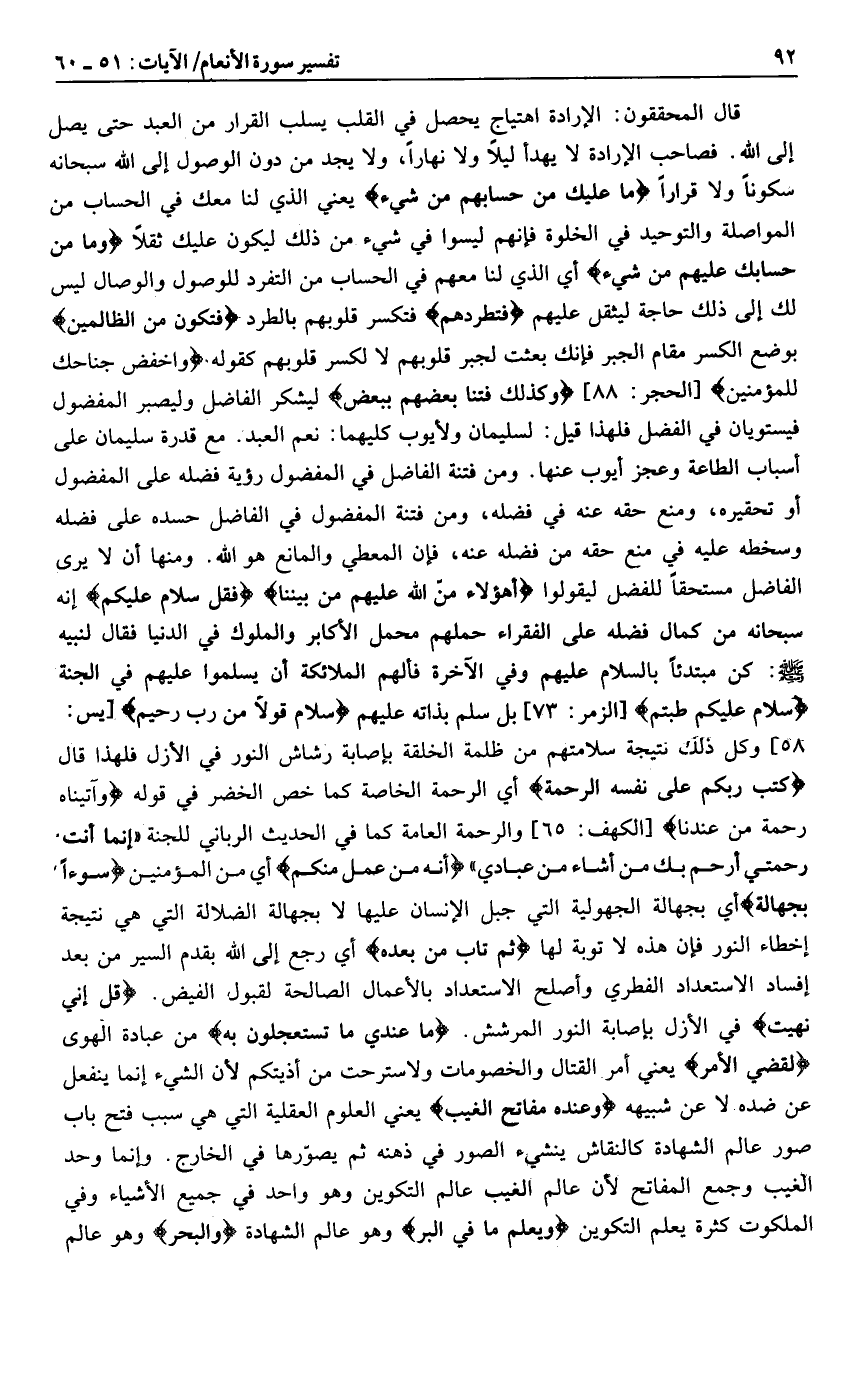 ٩٢ تفسير سورة الأنعام/ الآيات: ٥١ ـ ٦٠
قال المحققون: الإرادة اهتياج يحصل في القلب يسلب القرار من العبد حتى يصل
إلى الله. فصاحب الإرادة لا يهدأ ليلاً ولا نهاراً، ولا يجد من دون الوصول إلى الله سبحانه
سكوناً ولا قراراً ﴿ما عليك من حسابهم من شيء﴾ يعني الذي لنا معك في الحساب من
المواصلة والتوحيد في الخلوة فإنهم ليسوا في شيء من ذلك ليكون عليك ثقلاً ﴿وما من
حسابك عليهم من شيء﴾ أي الذي لنا معهم في الحساب من التفرد للوصول والوصال ليس
لك إلى ذلك حاجة ليثقل عليهم ﴿فتطردهم﴾ فتكسر قلوبهم بالطرد ﴿فتكون من الظالمين﴾
بوضع الكسر مقام الجبر فإنك بعثت لجبر قلوبهم لا لكسر قلوبهم كقوله ﴿واخفض جناحك
للمؤمنين﴾ [الحجر: ٨٨] ﴿وكذلك فتنا بعضهم ببعض﴾ ليشكر الفاضل وليصبر المفضول
فيستويان في الفضل فلهذا قيل: لسليمان ولأيوب كليهما: نعم العبد. مع قدرة سليمان على
أسباب الطاعة وعجز أيوب عنها. ومن فتنة الفاضل في المفضول رؤية فضله على المفضول
أو تحقيره، ومنع حقه عنه في فضله، ومن فتنة المفضول في الفاضل حسده على فضله
وسخطه عليه في منع حقه من فضله عنه، فإن المعطي والمانع هو الله. ومنها أن لا يرى
الفاضل مستحقاً للفضل ليقولوا ﴿أهؤلاء منّ الله عليهم من بيننا﴾ ﴿فقل سلام عليكم﴾ إنه
سبحانه من كمال فضله على الفقراء حملهم محمل الأكابر والملوك في الدنيا فقال لنبيه
ﷺ: كن مبتدئاً بالسلام عليهم وفي الآخرة فألهم الملائكة أن يسلموا عليهم في الجنة
﴿سلام عليكم طبتم﴾ [الزمر: ٧٣] بل سلم بذاته عليهم ﴿سلام قولاً من رب رحيم﴾ [يس:
٥٨] وكل ذلك نتيجة سلامتهم من ظلمة الخلقة بإصابة رشاش النور في الأزل فلهذا قال
﴿كتب ربكم على نفسه الرحمة﴾ أي الرحمة الخاصة كما خص الخضر في قوله ﴿وآتيناه
رحمة من عندنا﴾ [الكهف: ٦٥] والرحمة العامة كما في الحديث الرباني للجنة «إنما أنت
رحمتي أرحم بك من أشاء من عبادي» ﴿أنه من عمل منكم﴾ أي من المؤمنين ﴿سوءاً
بجهالة﴾أي بجهالة الجهولية التي جبل الإنسان عليها لا بجهالة الضلالة التي هي نتيجة
إخطاء النور فإن هذه لا توبة لها ﴿ثم تاب من بعده﴾ أي رجع إلى الله بقدم السير من بعد
إفساد الاستعداد الفطري وأصلح الاستعداد بالأعمال الصالحة لقبول الفيض. ﴿قل إني
نهيت﴾ في الأزل بإصابة النور المرشش. ﴿ما عندي ما تستعجلون به﴾ من عبادة الهوى
﴿لقضي الأمر﴾ يعني أمر القتال والخصومات ولاسترحت من أذيتكم لأن الشيء إنما ينفعل
عن ضده لا عن شبيهه ﴿وعنده مفاتح الغيب﴾ يعني العلوم العقلية التي هي سبب فتح باب
صور عالم الشهادة كالنقاش ينشيء الصور في ذهنه ثم يصوّرها في الخارج. وإنما وحد
الغيب وجمع المفاتح لأن عالم الغيب عالم التكوين وهو واحد في جميع الأشياء وفي
الملكوت كثرة يعلم التكوين ﴿ويعلم ما في البر﴾ وهو عالم الشهادة ﴿والبحر﴾ وهو عالم